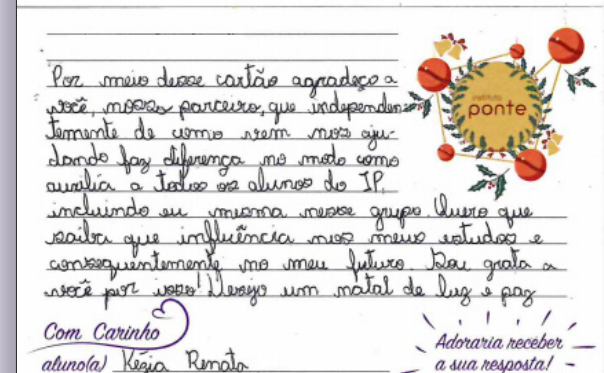 Por meio desse cartão agradeço a
você, nosso parceiro, que independen-
temente de como vem nos aju-
dando faz diferença no modo como
auxilia a todos os alunos do IP,
incluindo eu mesma nesse grupo. Quero que
saiba que influência nos meus estudos e
consequentemente no meu futuro. Sou grata a
você por isso! Desejo um natal de luz e paz
instituto
ponte
Com Carinho
aluno(a) Kézia Renata
Adoraria receber
a sua resposta!